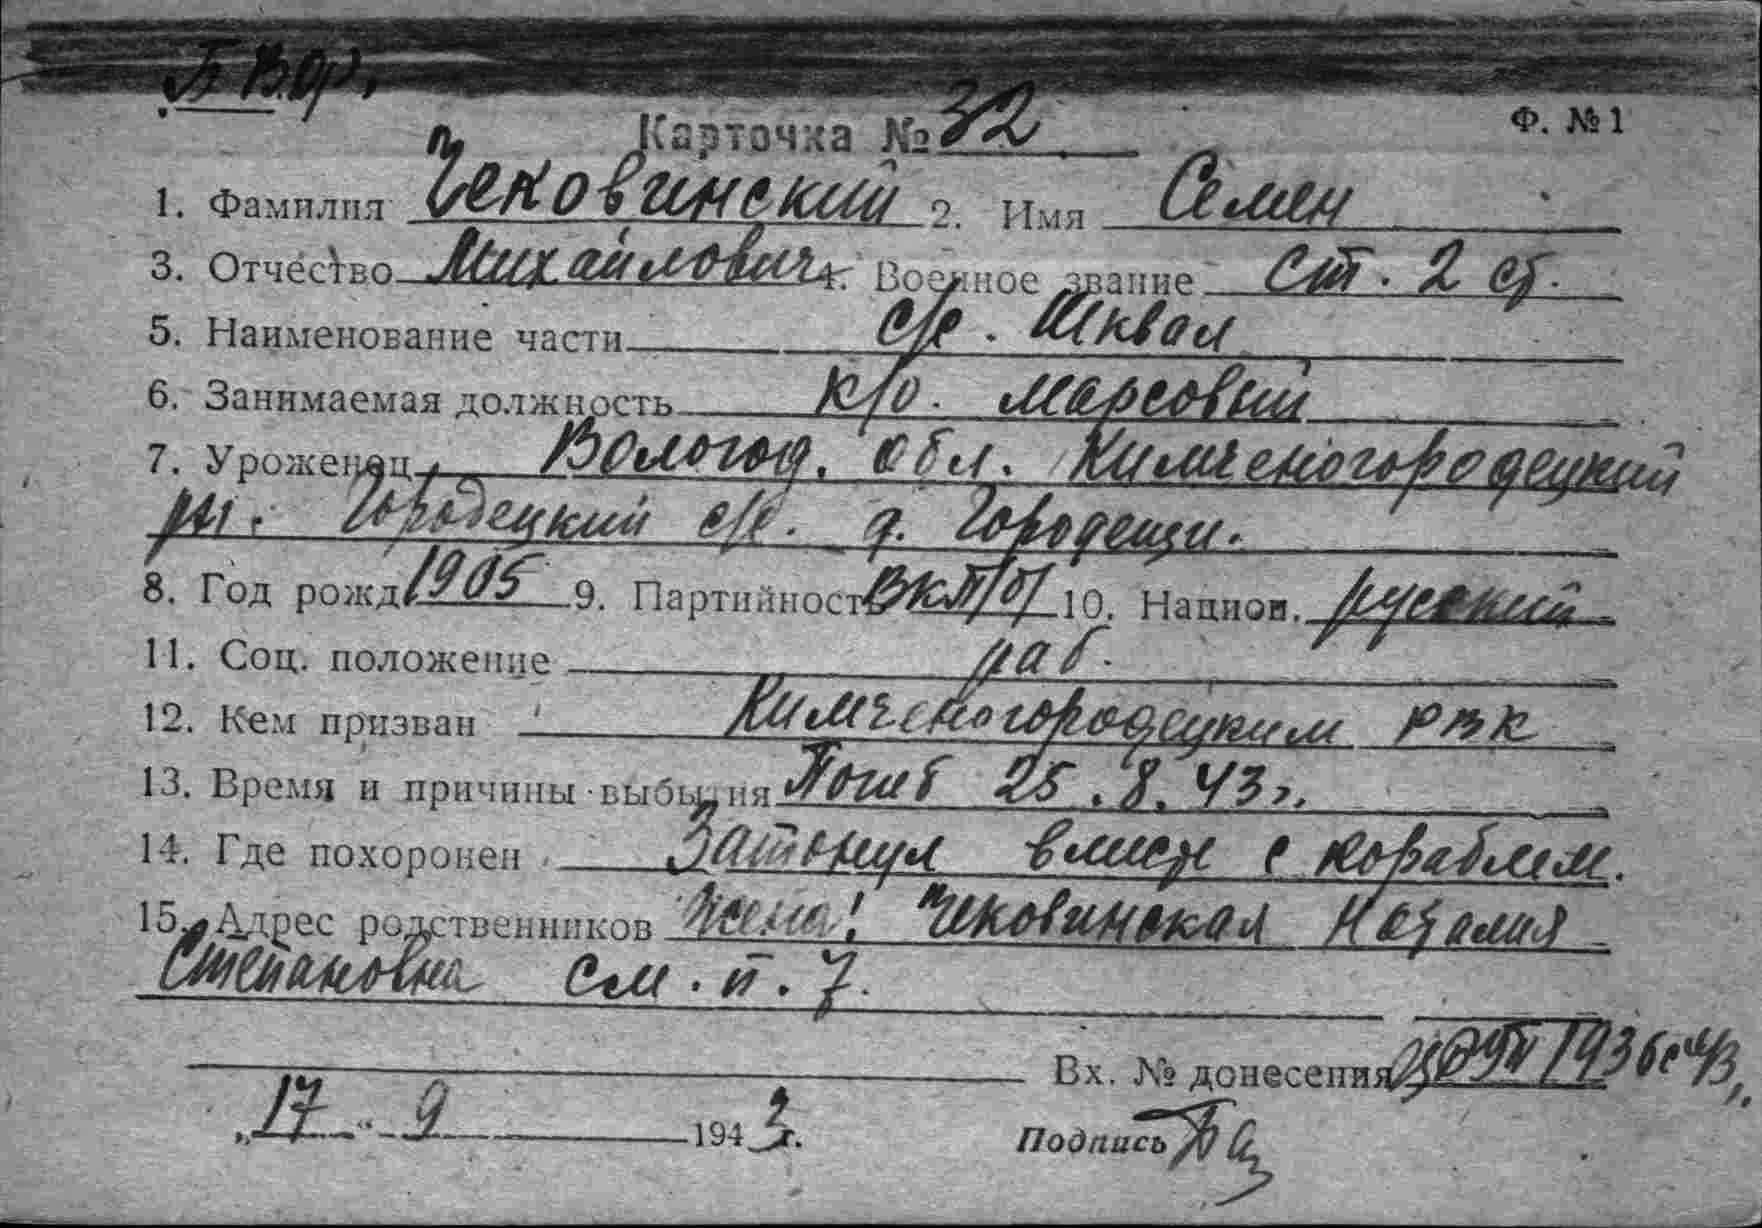 Б Вор.
Карточка № 32 Ф. № 1
1. Фамилия Чековинский 2. Имя Семен
3. Отчество Михайлович 4. Военное звание ст. 2 ст.
5. Наименование части с/к. Шквал
6. Занимаемая должность к/о. марсовый
7. Уроженец Вологод. обл. Кимченогородецкий
рн. Городецкий с/с. д. Городещи.
8. Год рожд 1905 9. Партийность ВКП/б/ 10. Национ. русский
11. Соц. положение раб.
12. Кем призван Кимченогородецким РВК
13. Время и причины выбытия Погиб 25.8.43г.
14. Где похоронен Затонул вместе с кораблем.
15. Адрес родственников Жена: Чековинская Наталия
Степановна см. п. 7.
Вх. № донесения
„17“ 9 1943 г. Подпись